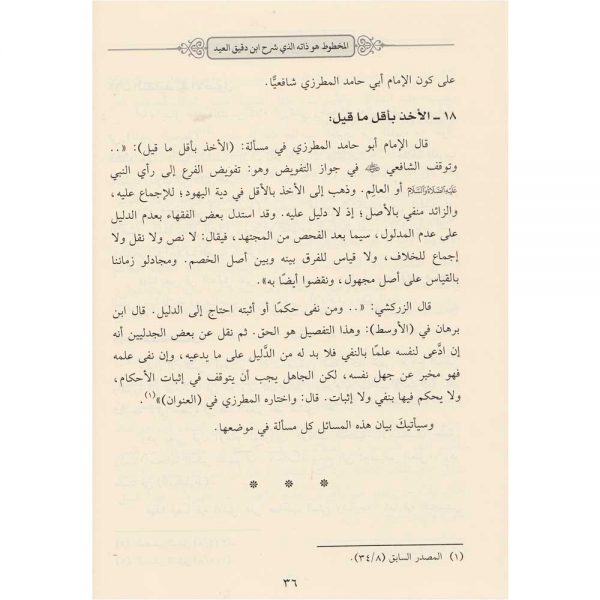 المخطوط هو ذاته الذي شرح ابن دقيق العيد
على كون الإمام أبي حامد المطرزي شافعيًّا.
١٨ - الأخذ بأقل ما قيل:
قال الإمام أبو حامد المطرزي في مسألة: (الأخذ بأقل ما قيل): «..
وتوقف الشافعي في جواز التفويض وهو: تفويض الفرع إلى رأي النبي
عَلَيْهِ الصَّلَاةُ وَالسَّلَامُ أو العالِم. وذهب إلى الأخذ بالأقل في دية اليهود؛ للإجماع عليه،
والزائد منفي بالأصل؛ إذ لا دليل عليه. وقد استدل بعض الفقهاء بعدم الدليل
على عدم المدلول، سيما بعد الفحص من المجتهد، فيقال: لا نص ولا نقل ولا
إجماع للخلاف، ولا قياس للفرق بينه وبين أصل الخصم. ومجادلو زماننا
بالقياس على أصل مجهول، ونقضوا أيضًا به».
قال الزركشي: «.. ومن نفى حكمًا أو أثبته احتاج إلى الدليل. قال ابن
برهان في (الأوسط): وهذا التفصيل هو الحق. ثم نقل عن بعض الجدليين أنه
إن ادَّعى لنفسه علمًا بالنفي فلا بد له من الدَّليل على ما يدعيه، وإن نفى علمه
فهو مخبر عن جهل نفسه، لكن الجاهل يجب أن يتوقف في إثبات الأحكام،
ولا يحكم فيها بنفي ولا إثبات. قال: واختاره المطرزي في (العنوان)»(١).
وسيأتيكَ بيان هذه المسائل كل مسألة في موضعها.
* * *
(١) المصدر السابق (٣٤/٨).
٣٦